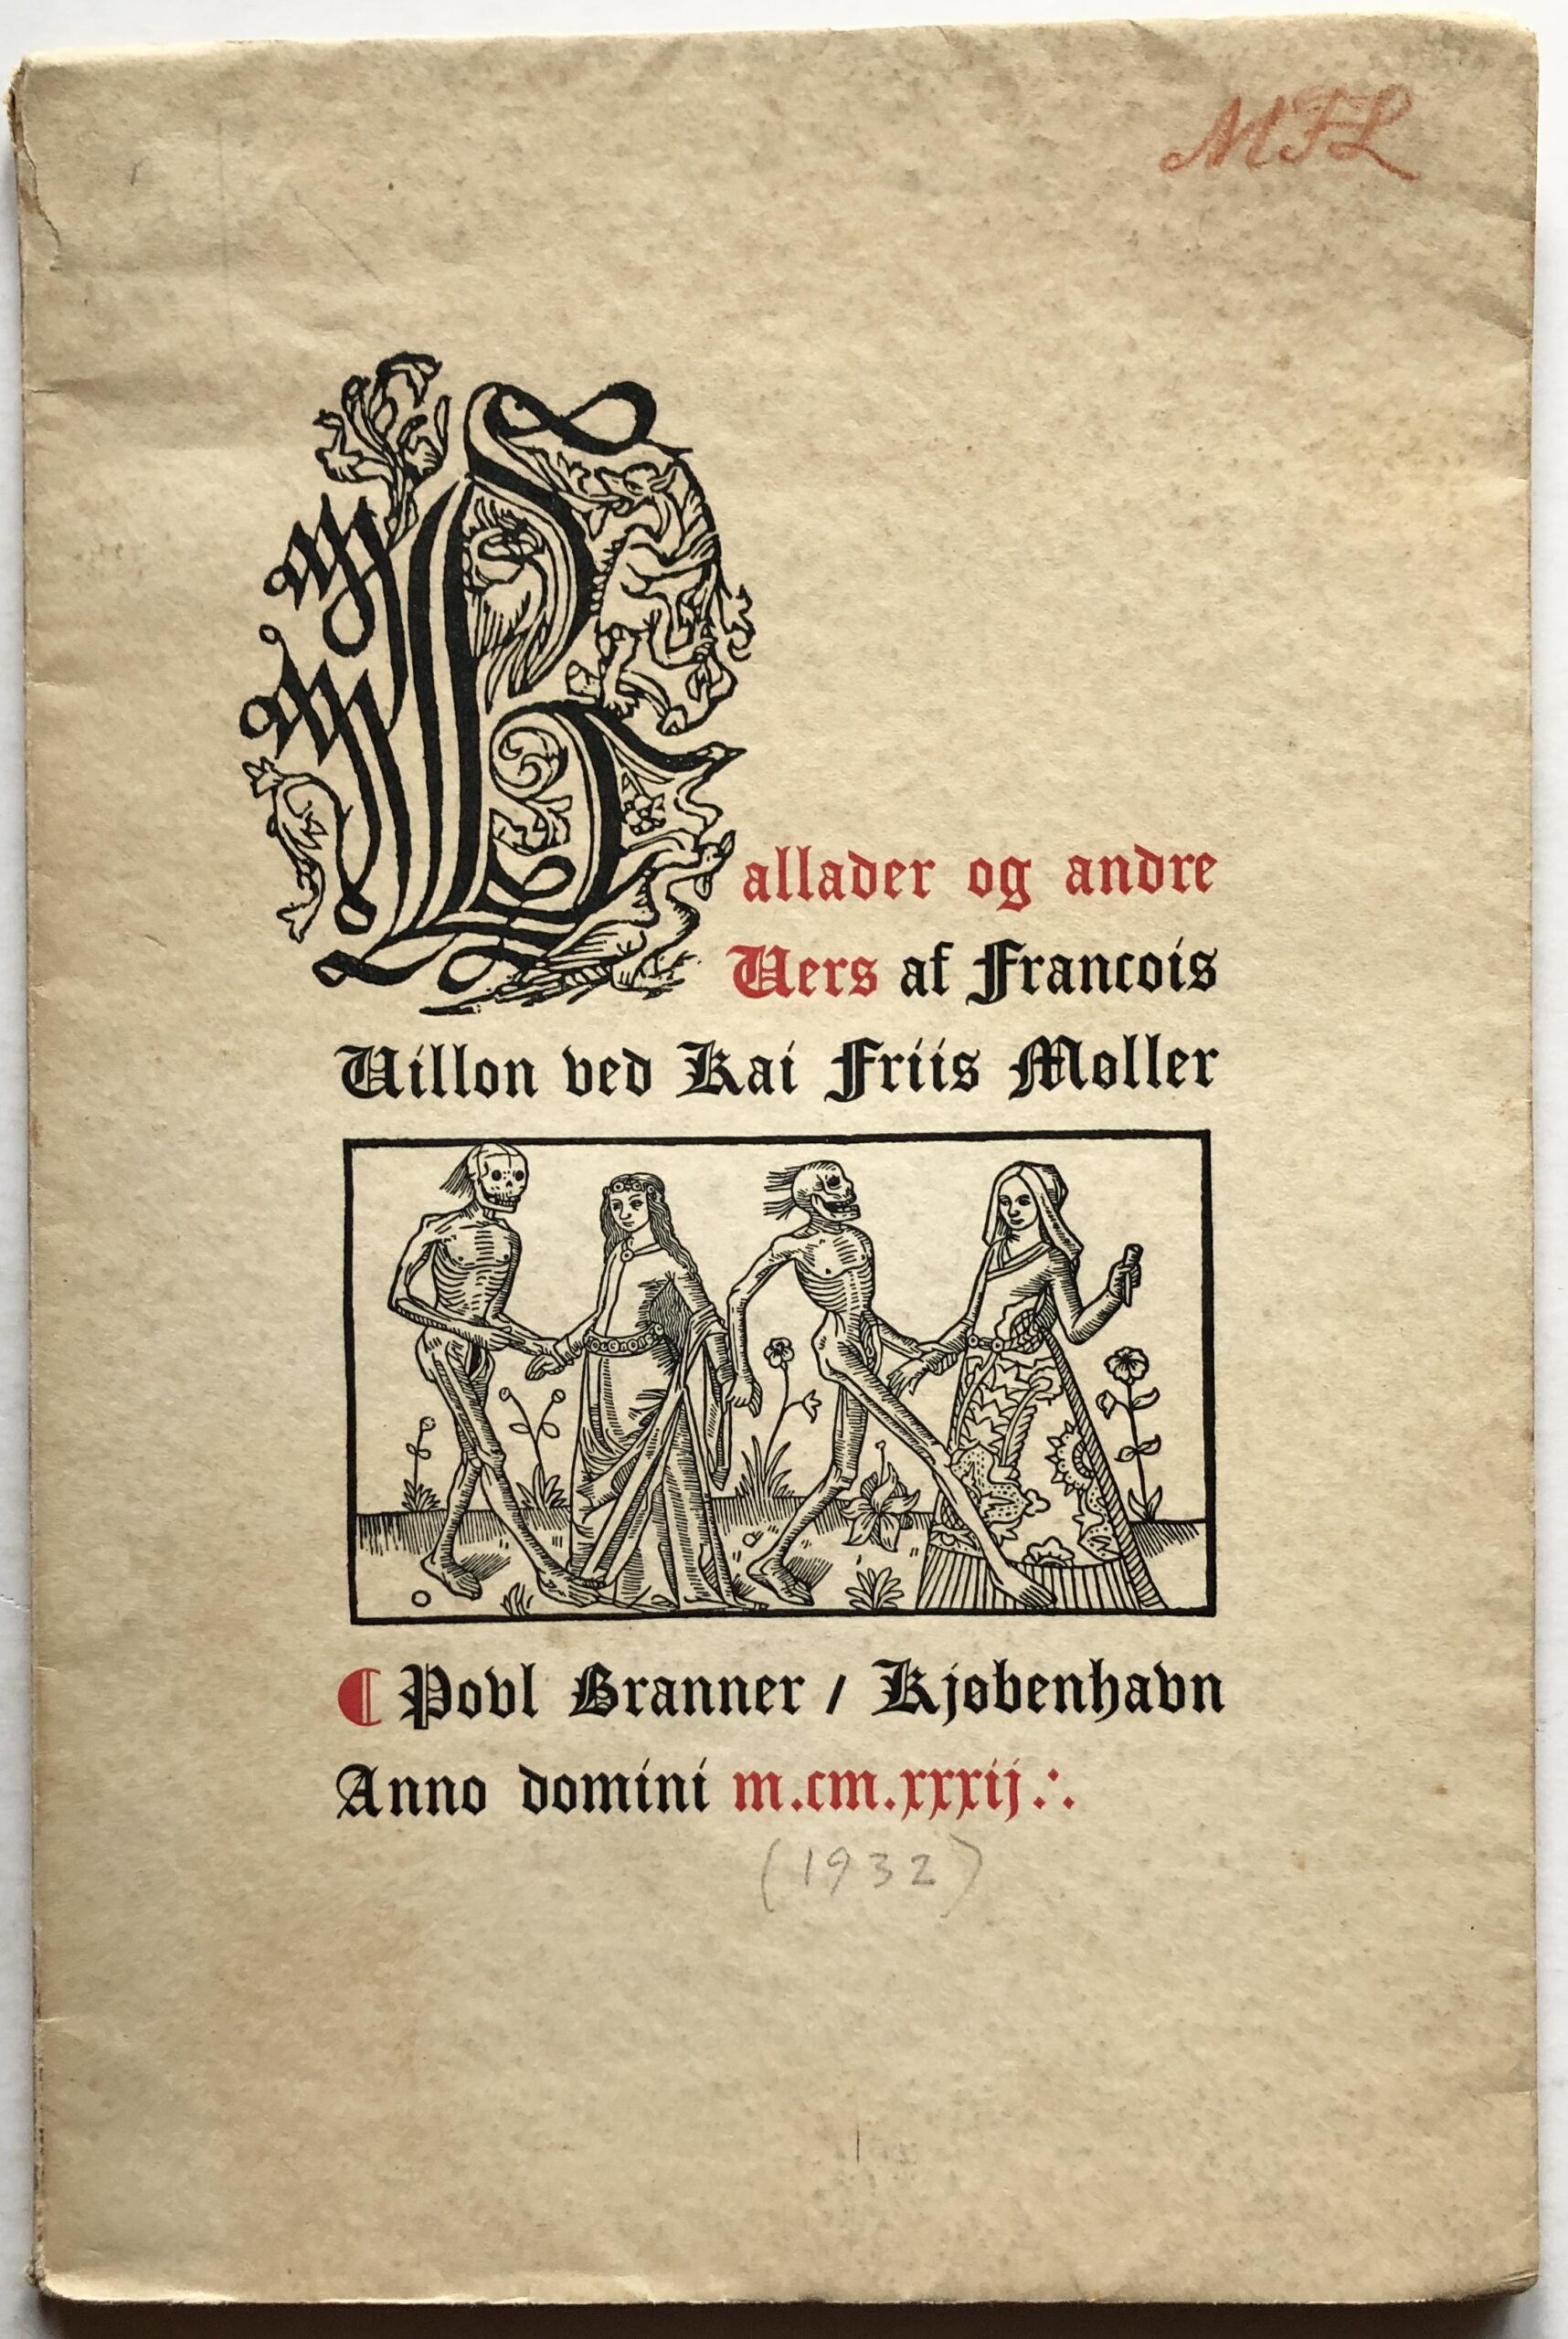 MFL
Ballader og andre
Vers af Francois
Villon ved Kai Friis Møller
¶ Povl Branner / Kjøbenhavn
Anno domini m.cm.xxxij∴
(1932)